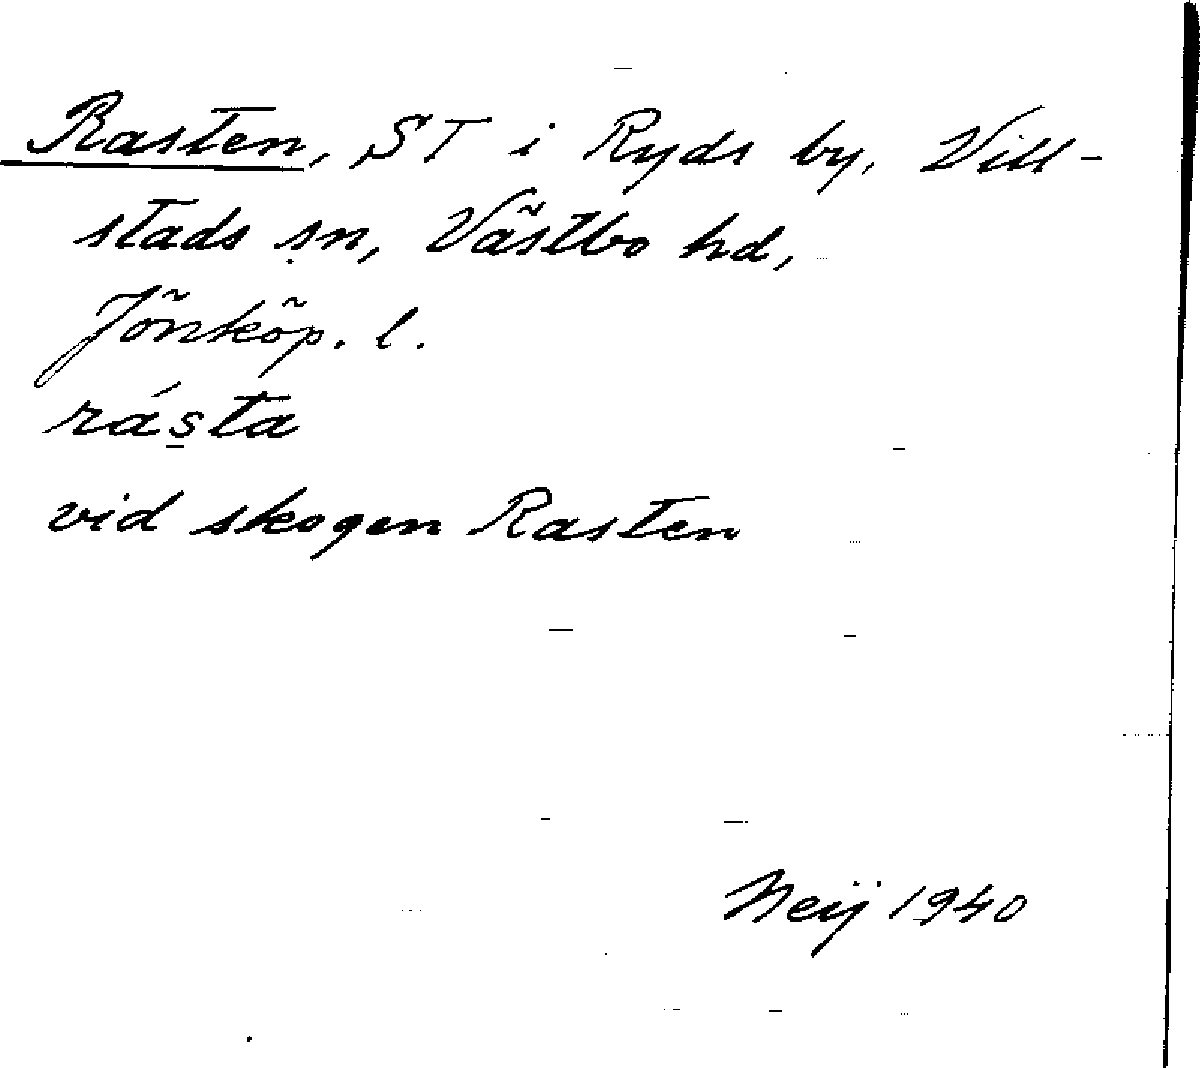 Rasten, ST i Ryds by, Vill-
stads sn, Västbo hd,
Jönköp. l.
rás̲ta
vid skogen Rasten
Neij 1940